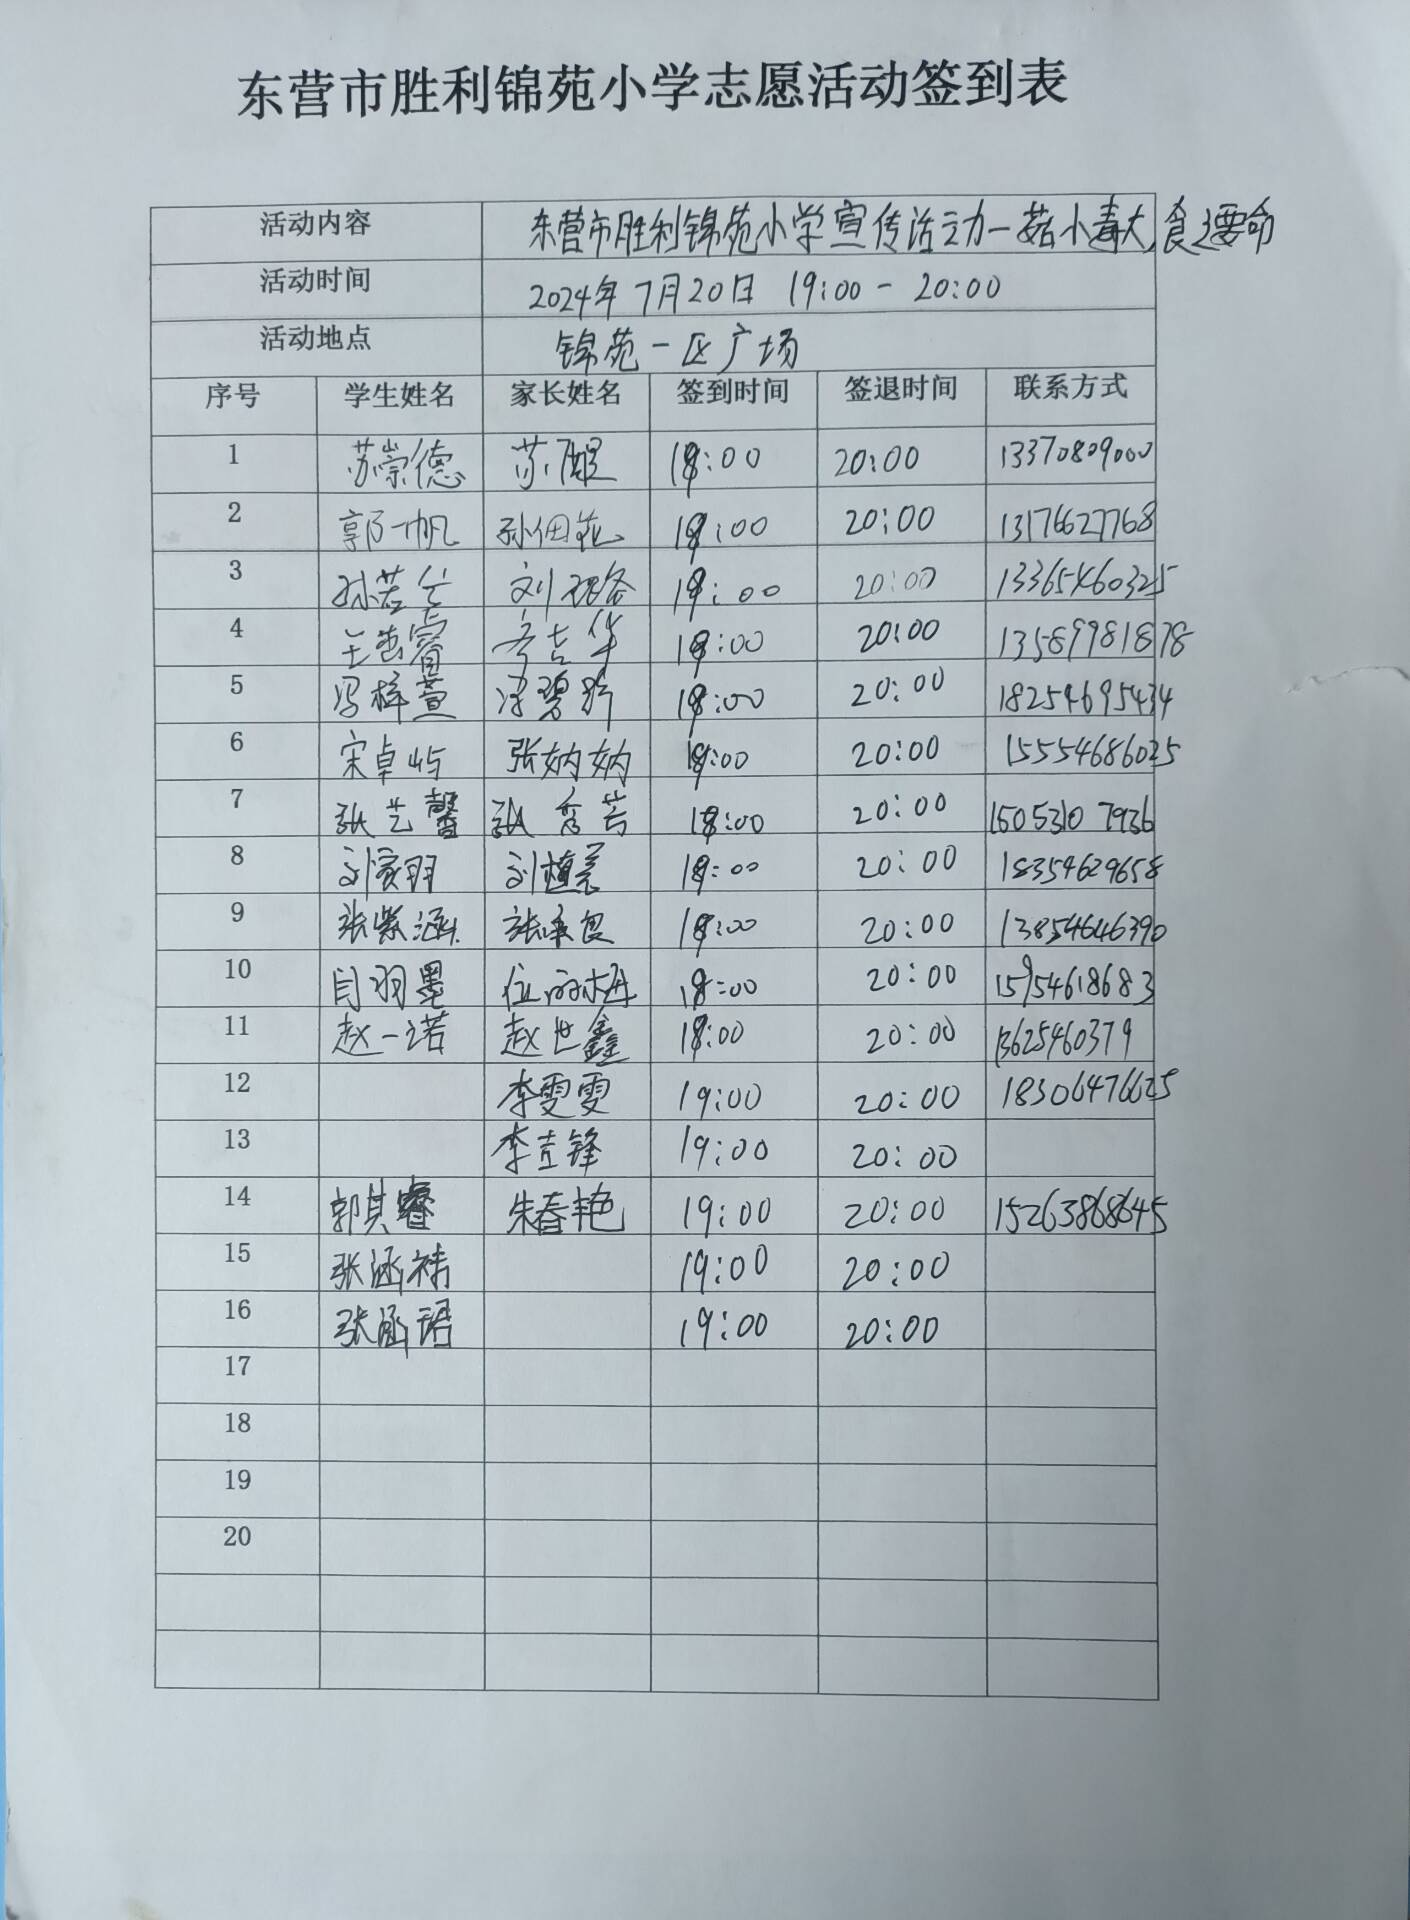 东营市胜利锦苑小学志愿活动签到表
活动内容 东营市胜利锦苑小学宣传活动—菇小毒大,食之要命
活动时间 2024年7月20日 19:00-20:00
活动地点 锦苑一区广场
序号 学生姓名 家长姓名 签到时间 签退时间 联系方式
1 苏崇德 苏醒 19:00 20:00 13370809000
2 郭一帆 孙田花 19:00 20:00 13176627768
3 孙若兮 刘 19:00 20:00 13365460325
4 王 睿 华 19:00 20:00 13589981878
5 冯梓萱 碧 19:00 20:00 18254695434
6 宋卓屿 张妠妠 19:00 20:00 15554686025
7 张艺馨 张秀芳 19:00 20:00 15053107936
8 刘家羽 刘植 19:00 20:00 18354629658
9 张紫涵 张 良 19:00 20:00 13854646390
10 闫羽墨 位 梅 19:00 20:00 15954618683
11 赵一诺 赵世鑫 19:00 20:00 13625460379
12 李雯雯 19:00 20:00 18306476625
13 李 锋 19:00 20:00
14 郭其睿 朱春艳 19:00 20:00 15263868645
15 张涵祎 19:00 20:00
16 张涵语 19:00 20:00
17
18
19
20